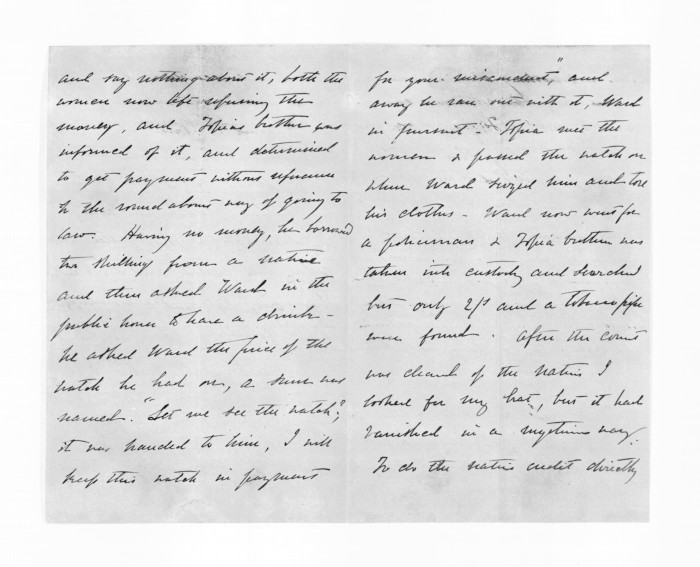 and say nothing about it, both the
women now left refusing the
money, and Topias brother was
informed of it, and determined
to get payment without reference
to the round about way of going to
law. Having no money, he borrowed
two shillings from a native
and then asked Ward in the
public house to have a drink –
he asked Ward the price of the
watch he had on, a sum was
named. "Let me see the watch";
it was handed to him, I will
keep this watch in payment
for your misconduct," and
away he ran out with it, Ward
in pursuit – Topia met the
women & passed the watch on
when Ward seized him and tore
his clothes – Ward now went for
a policeman & Topia brother was
taken into custody and searched
but only 2/s and a tobacco pipe
were found. After the court
was cleared of the natives I
looked for my hat, but it had
vanished in a mysterious way.
To do the natives credit directly